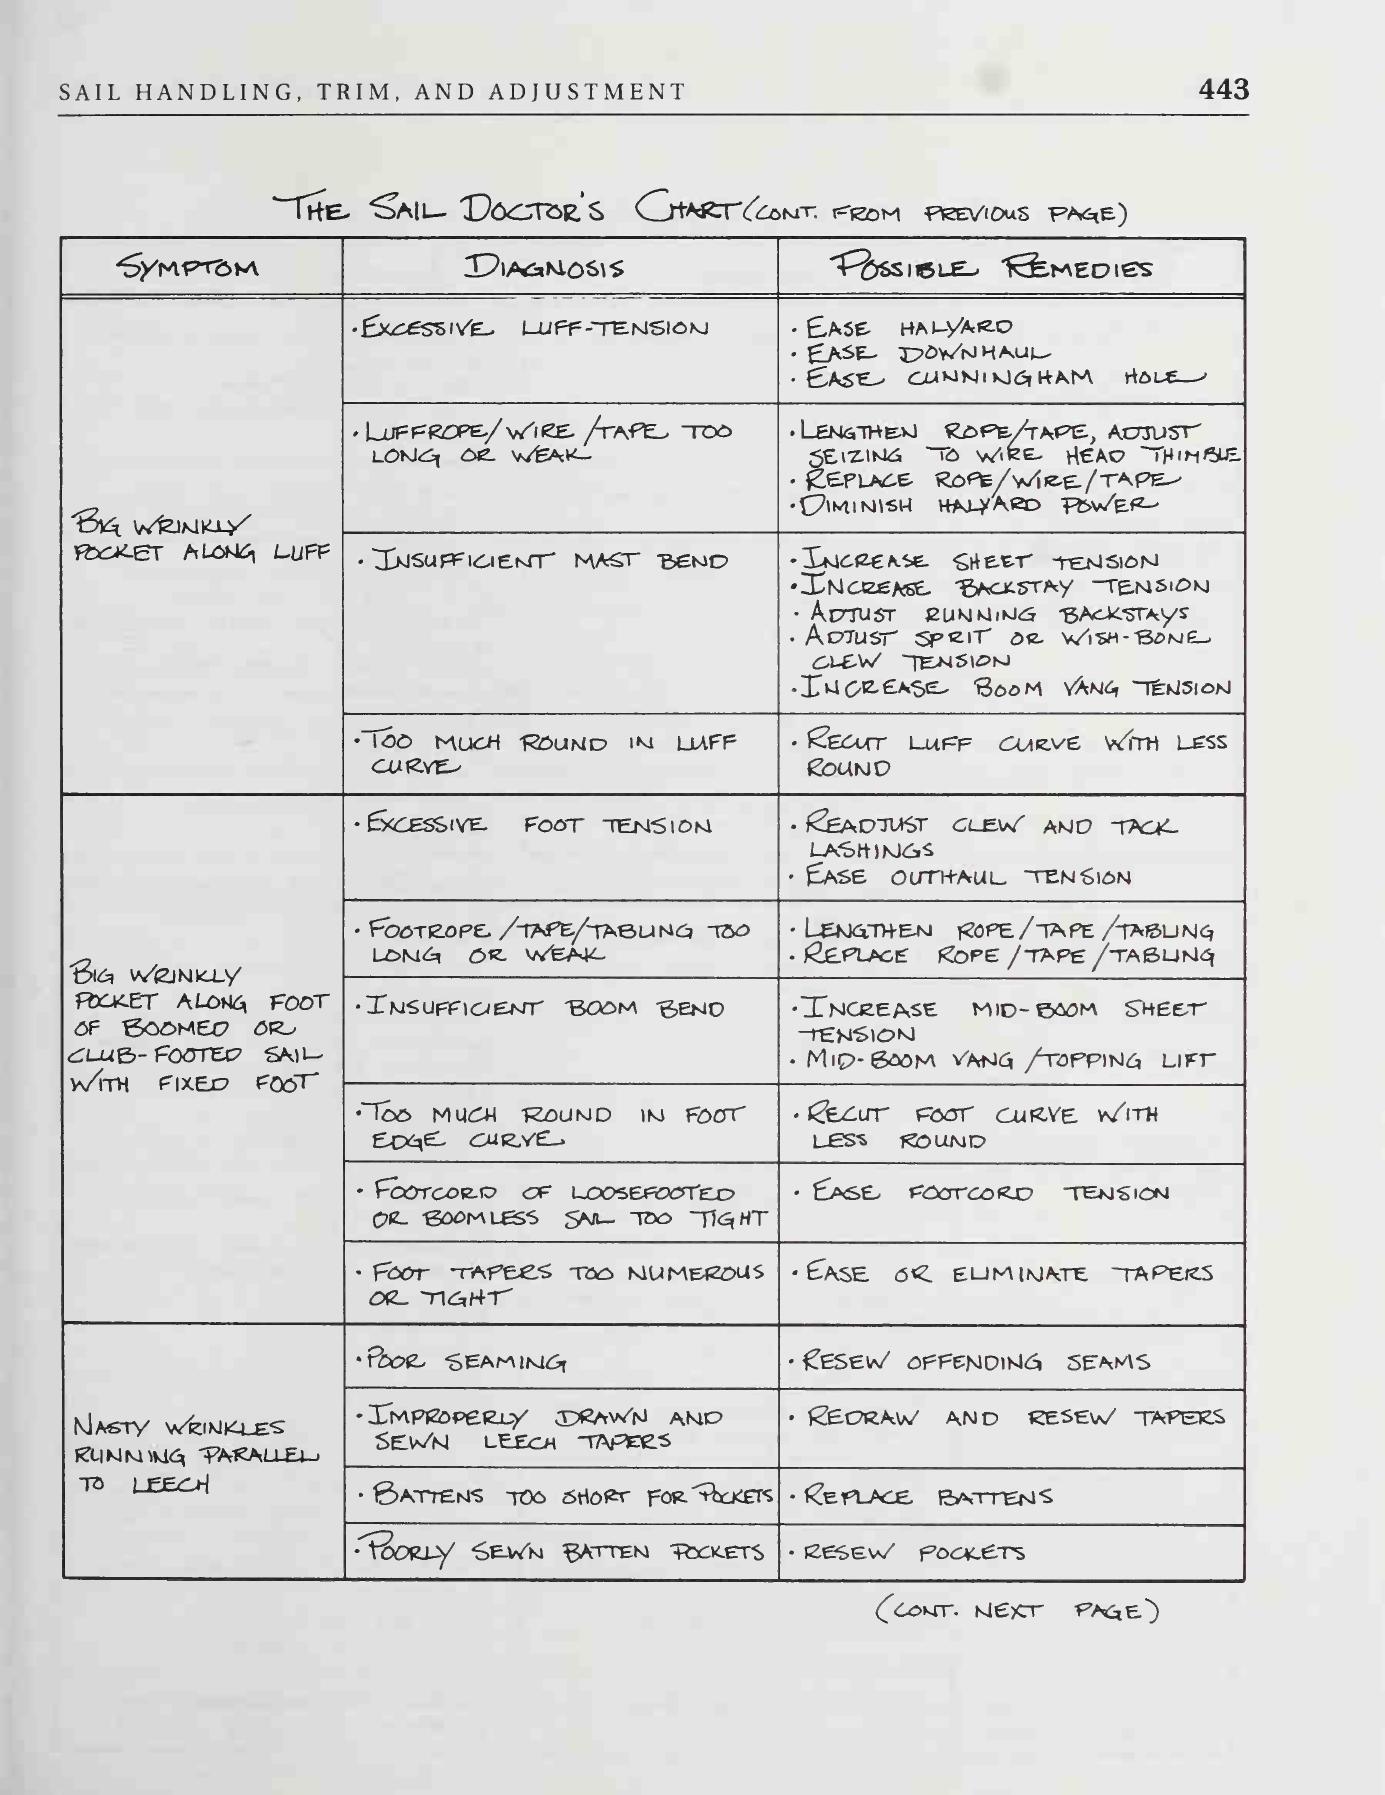 SAIL HANDLING, TRIM, AND ADJUSTMENT 443
THE SAIL DOCTOR'S CHART (CONT. FROM PREVIOUS PAGE)
SYMPTOM DIAGNOSIS POSSIBLE REMEDIES
BIG WRINKLY
POCKET ALONG LUFF
• EXCESSIVE LUFF-TENSION
• EASE HALYARD
• EASE DOWNHAUL
• EASE CUNNINGHAM HOLE
• LUFFROPE/WIRE/TAPE TOO
LONG OR WEAK
• LENGTHEN ROPE/TAPE, ADJUST
SEIZING TO WIRE HEAD THIMBLE
• REPLACE ROPE/WIRE/TAPE
• DIMINISH HALYARD POWER
• INSUFFICIENT MAST BEND
• INCREASE SHEET TENSION
• INCREASE BACKSTAY TENSION
• ADJUST RUNNING BACKSTAYS
• ADJUST SPRIT OR WISH-BONE
CLEW TENSION
• INCREASE BOOM VANG TENSION
• TOO MUCH ROUND IN LUFF
CURVE
• RECUT LUFF CURVE WITH LESS
ROUND
BIG WRINKLY
POCKET ALONG FOOT
OF BOOMED OR
CLUB-FOOTED SAIL
WITH FIXED FOOT
• EXCESSIVE FOOT TENSION
• READJUST CLEW AND TACK
LASHINGS
• EASE OUTHAUL TENSION
• FOOTROPE/TAPE/TABLING TOO
LONG OR WEAK
• LENGTHEN ROPE/TAPE/TABLING
• REPLACE ROPE/TAPE/TABLING
• INSUFFICIENT BOOM BEND
• INCREASE MID-BOOM SHEET
TENSION
• MID-BOOM VANG/TOPPING LIFT
• TOO MUCH ROUND IN FOOT
EDGE CURVE
• RECUT FOOT CURVE WITH
LESS ROUND
• FOOTCORD OF LOOSEFOOTED
OR BOOMLESS SAIL TOO TIGHT
• EASE FOOTCORD TENSION
• FOOT TAPERS TOO NUMEROUS
OR TIGHT
• EASE OR ELIMINATE TAPERS
NASTY WRINKLES
RUNNING PARALLEL
TO LEECH
• POOR SEAMING
• RESEW OFFENDING SEAMS
• IMPROPERLY DRAWN AND
SEWN LEECH TAPERS
• REDRAW AND RESEW TAPERS
• BATTENS TOO SHORT FOR POCKETS
• REPLACE BATTENS
• POORLY SEWN BATTEN POCKETS
• RESEW POCKETS
(CONT. NEXT PAGE)